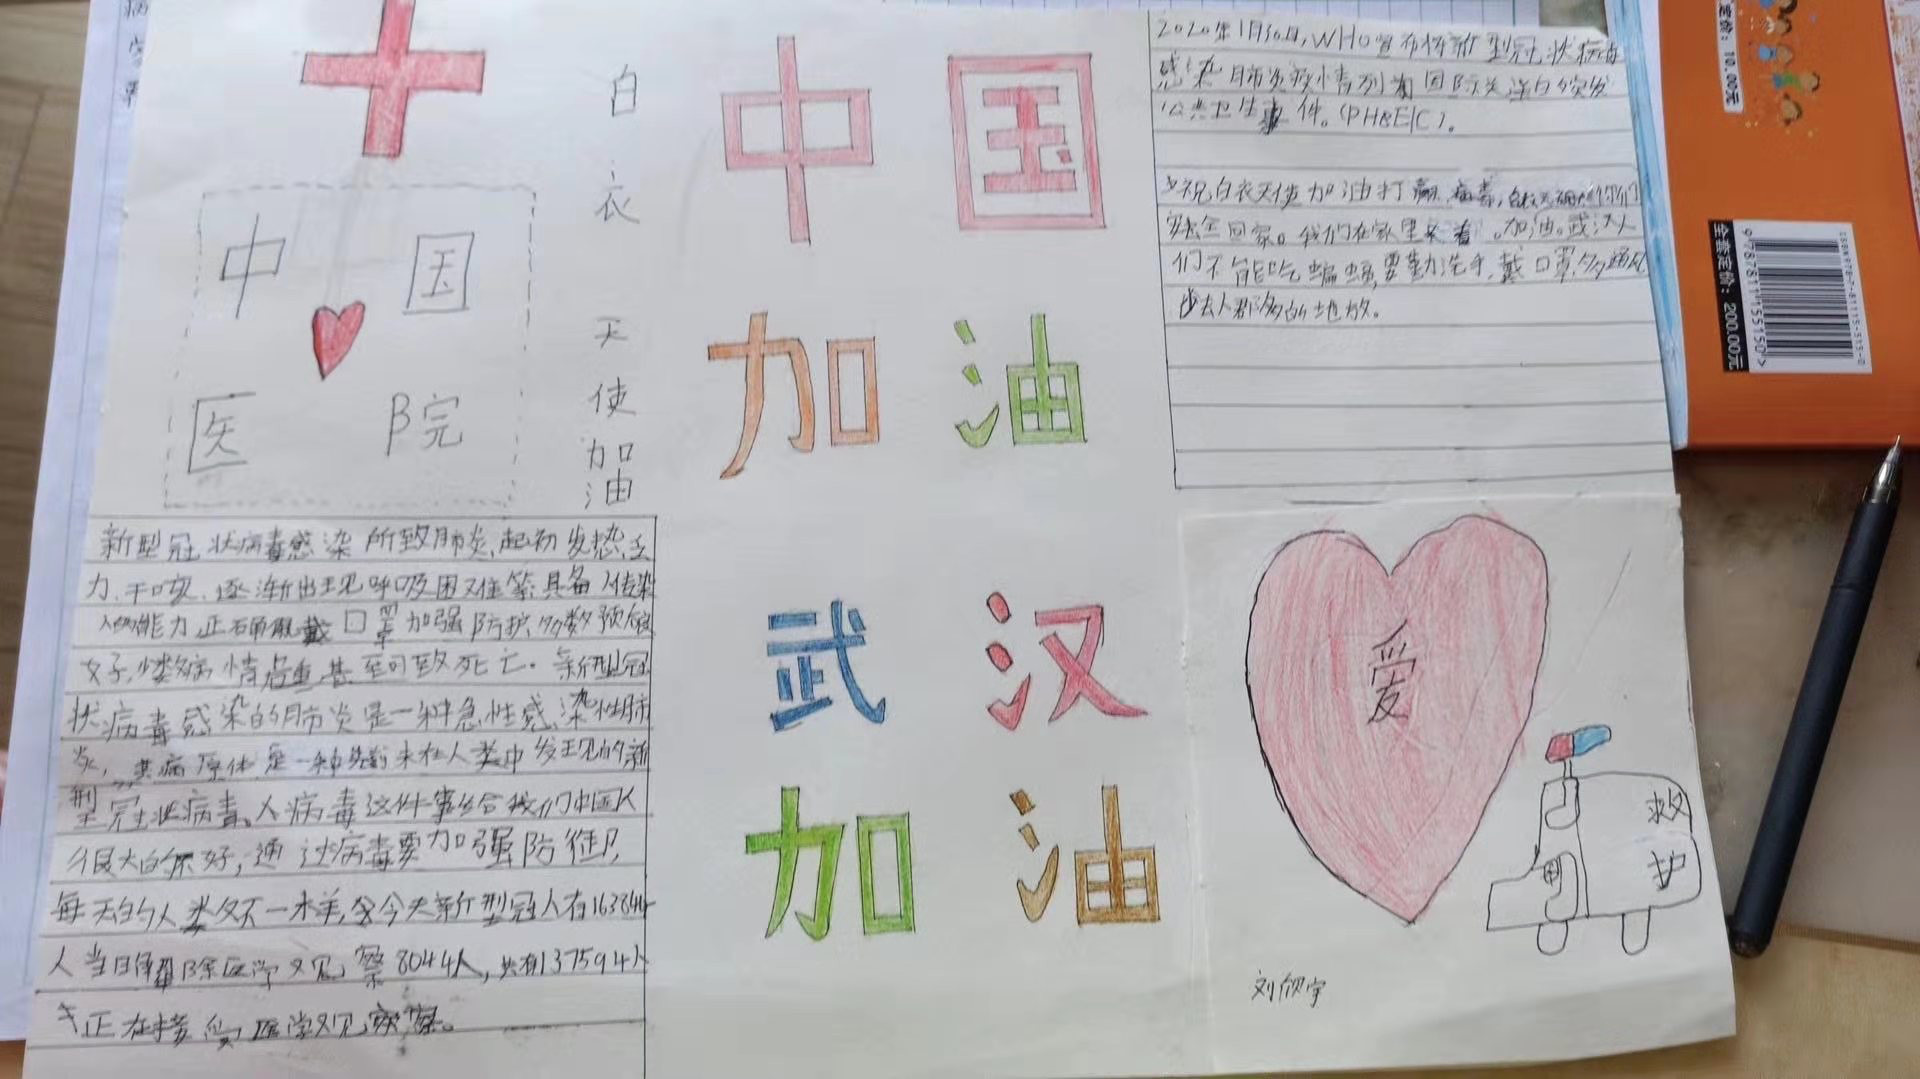 中国
医院
白衣天使加油
中国
加油
武汉
加油
2020年1月30日,WHO宣布将新型冠状病毒
感染肺炎疫情列为国际关注的突发
公共卫生事件。(PHEIC)。
祝白衣天使加油打赢病毒,你们
安全回家。我们在家里 着。加油。武汉人
们不能吃蝙蝠,要勤洗手,戴口罩,多通风
少去人群多的地放。
新型冠状病毒感染所致肺炎,起初发热,乏
力、干咳、逐渐出现呼吸困难等,具备传染
人的能力,正确戴口罩加强防护,多数预后
女子,少数病情危重甚至可致死亡。新型冠
状病毒感染的肺炎是一种急性感染性肺
炎,其病原体是一种先前未在人类中发现的新
型冠状病毒。人病毒这件事给我们中国人
很大的不好,通过病毒要加强防御,
每天的人类多不一样,今天新型冠人有16384
人当日解除医学观察8044人,共有137594人
正在接受医学观察。
爱
救
护
刘欣宇
定价:10.00元
全套定价:200.00元
9787811155150>